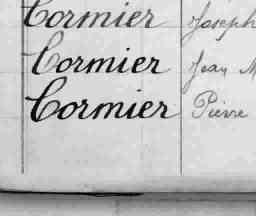 Cormier Joseph
Cormier Jean M
Cormier Pierre